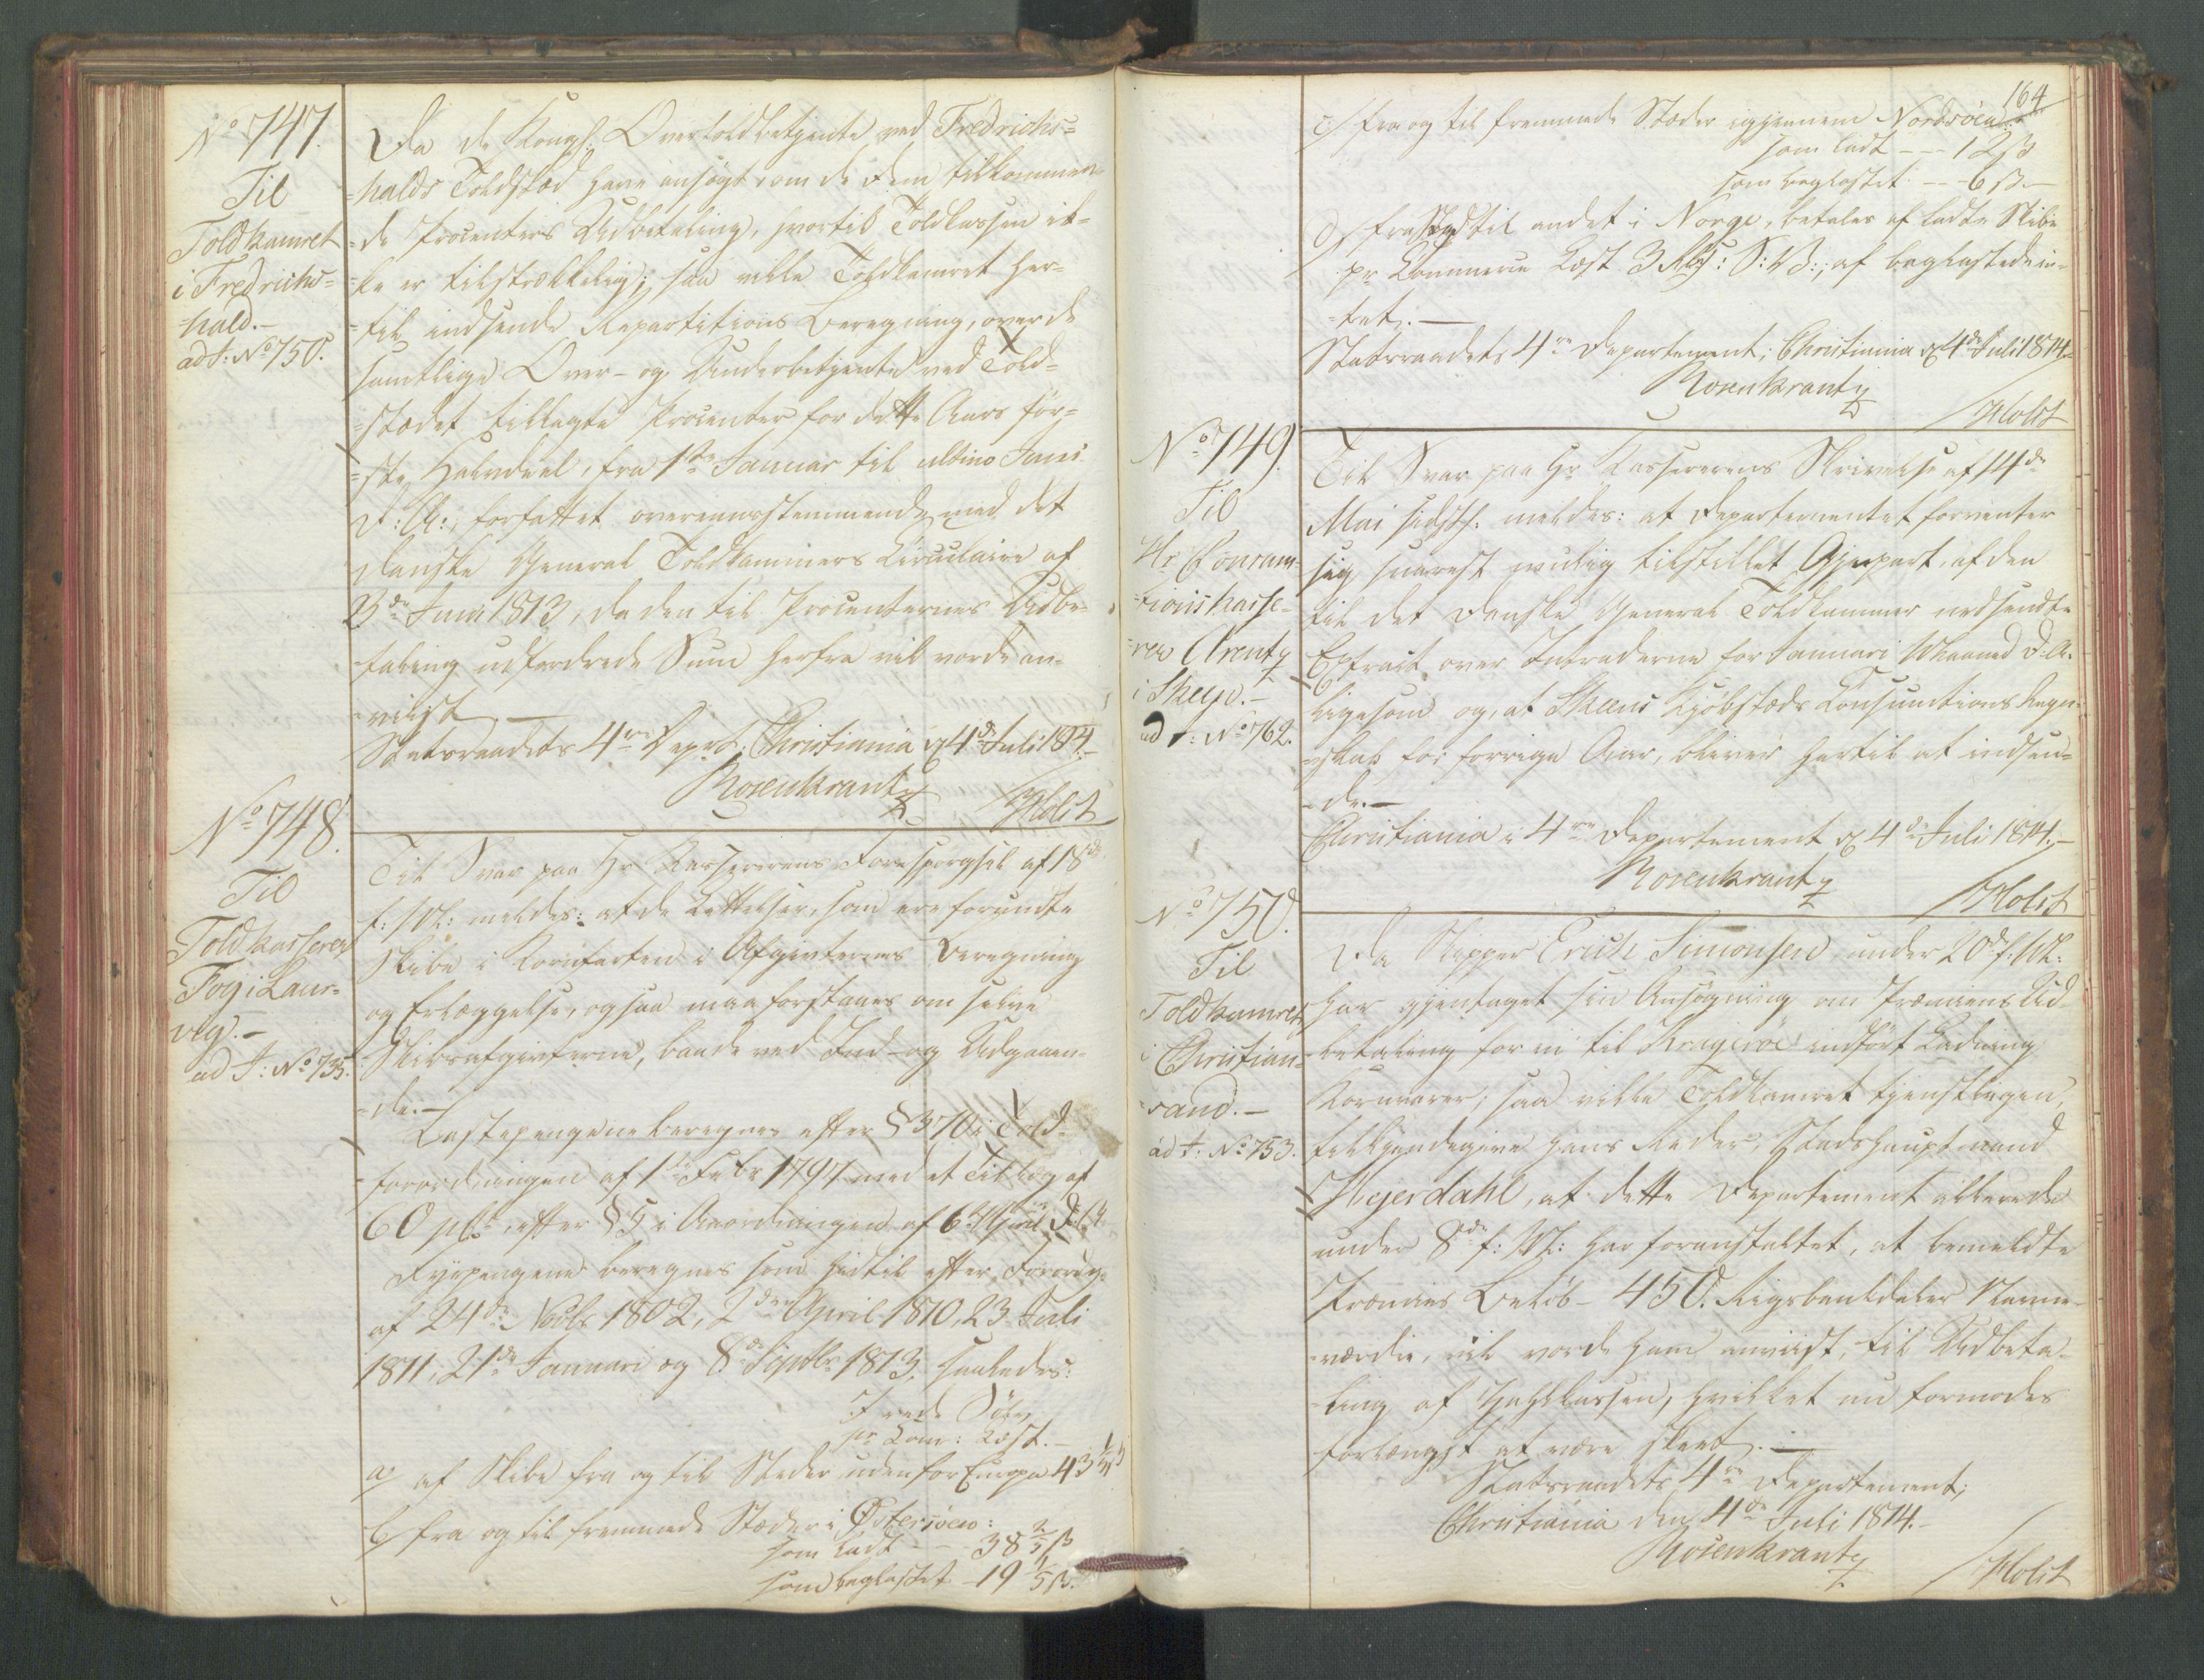 No 747.
Til
Toldkamret
i Fredrichs-
hald.-
ad J: No 750.
Da de Kongl: Overtoldbetjente ved Fredrichs-
halds Toldsted have ansøgt om de dem tilkommen-
de Procenters Udbetaling, hvortil Toldkassen ik-
ke er tilstrækkelig; saa ville Toldkamret her-
til indsende Repartitions Beregning, over de
samtlige Over- og Underbetjente ved Told-
stædet tillagte Procenter for dette Aars før-
ste Halvdeel, fra 1ste Januar til ultimo Juni
d: A:, forfattet overeensstemmende med det
danske General Toldkammers Circulaire af
3de Juni 1813, da den til Procenternes Udbe-
taling udfordrede Sum herfra vil vorde an-
viist.-
Statsraadets 4re Dept: Christiania d 4de Juli 1814.-
Rosenkrantz
/Holst
No 748.
Til
Toldkasserer
Fog i Laur-
vig.-
ad J: No 735.
Til Svar paa Hr Kassererens Forespørgsel af 18de
f: M: meldes: at de Lettelser, som ere forundte
Skibe i Kornfarten i Afgivternes Beregning
og Erlæggelse, ogsaa maa forstaaes om selve
Skibsafgivterne, baade ved Ind- og Udgaaen-
de.-
Lastepengene beregnes efter § 370 i Told-
forordningen af 1ste Febr 1797 med et Tillæg af
60 pCt: efter § 5 i Anordningen af 6te April d: A:
Fyrpengene beregnes som hidtil efter Forordn:
af 24de Novbr 1802, 2den April 1810, 23 Juli
1811, 21de Januari og 8de Septbr 1813, saaledes:
I rede Sølv
pr Com: Læst.-
a) af Skibe fra og til Steder udenfor Europa 43 1/5 ß
b) fra og til fremmede Stæder i Østersöen:
som ladt - - 38 2/5 ß
som baglastet - 19 1/5 ß.
164
c) fra og til fremmede Stæder igjennem Nordsöen
som ladt - - - 12 ß
som baglastet - - 6 ß.-
d) fra Sted til andet i Norge, betales af ladte Skibe
pr Commerce Læst 3 Rbß: S: V:; af baglastede in-
tet.-
Statsraadets 4re Departement; Christiania d 4de Juli 1814.-
Rosenkrantz
/Holst
No 749.
Til
Hr Consum-
tionskasse-
rer Arentz
i Skeen.-
ad J: No 762.
Til Svar paa Hr Kassererens Skrivelse af 14de
Mai sidstl. meldes: at Departementet forventer
sig snarest muelig tilstillet Gjenpart, af den
til det danske General Toldkammer nedsendte
Extract over Intraderne for Januari Maaned d: A.
ligesom og, at Skeens Kjöbstæds Consumtions Regn-
skab for forrige Aar, bliver hertil at indsen-
de.-
Christiania i 4re Departement d 4de Juli 1814.-
Rosenkrantz
/Holst
No 750.
Til
Toldkamret
i Christian-
sand.-
ad J: No 753.
Da Skipper Erich Simonsen under 20de f: M:
har gjentaget sin Ansøgning om Præmiens Ud-
betaling for en til Krageröe indført Ladning
Kornvarer; saa ville Toldkamret tjenstligen,
tilkjendegive hans Reder, Stadshauptmand
Heyerdahl, at dette Departement allerede
under 8de f: M: har foranstaltet, at bemeldte
Præmies Beløb - 450. Rigsbankdaler Navne-
værdie, vil vorde ham anviist, til Udbeta-
ling af Zahlkassen, hvilket nu formodes
forlængst at være skeet.-
Statsraadets 4re Departement;
Christiania den 4de Juli 1814.-
Rosenkrantz
/Holst